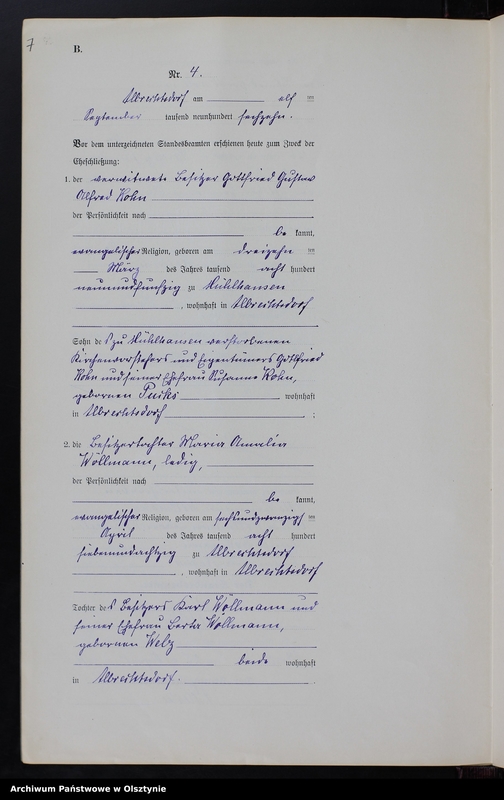 7
B.
Nr. 4.
Albrechtsdorf am elf ten
September tausend neunhundert sechzehn.
Vor dem unterzeichneten Standesbeamten erschienen heute zum Zweck der
Eheschließung:
1. der verwitwete Besitzer Gottfried Gustav
Alfred Kohn
der Persönlichkeit nach
be kannt,
evangelischer Religion, geboren am dreizehn ten
März des Jahres tausend acht hundert
neunundfünfzig zu Mühlhausen
, wohnhaft in Albrechtsdorf
Sohn des zu Mühlhausen verstorbenen
Kirchenvorstehers und Eigentümers Gottfried
Kohn und seiner Ehefrau Susanne Kohn,
geborenen wohnhaft
in Albrechtsdorf ;
2. die Besitzertochter Maria Amalie
Wöllmann, ledig,
der Persönlichkeit nach
be kannt,
evangelischer Religion, geboren am sechsundzwanzigs ten
April des Jahres tausend acht hundert
siebenundachtzig zu Albrechtsdorf
, wohnhaft in Albrechtsdorf
Tochter des Besitzers Karl Wöllmann und
seiner Ehefrau Berta Wöllmann,
geborenen Welz
beide wohnhaft
in Albrechtsdorf.
Archiwum Państwowe w Olsztynie